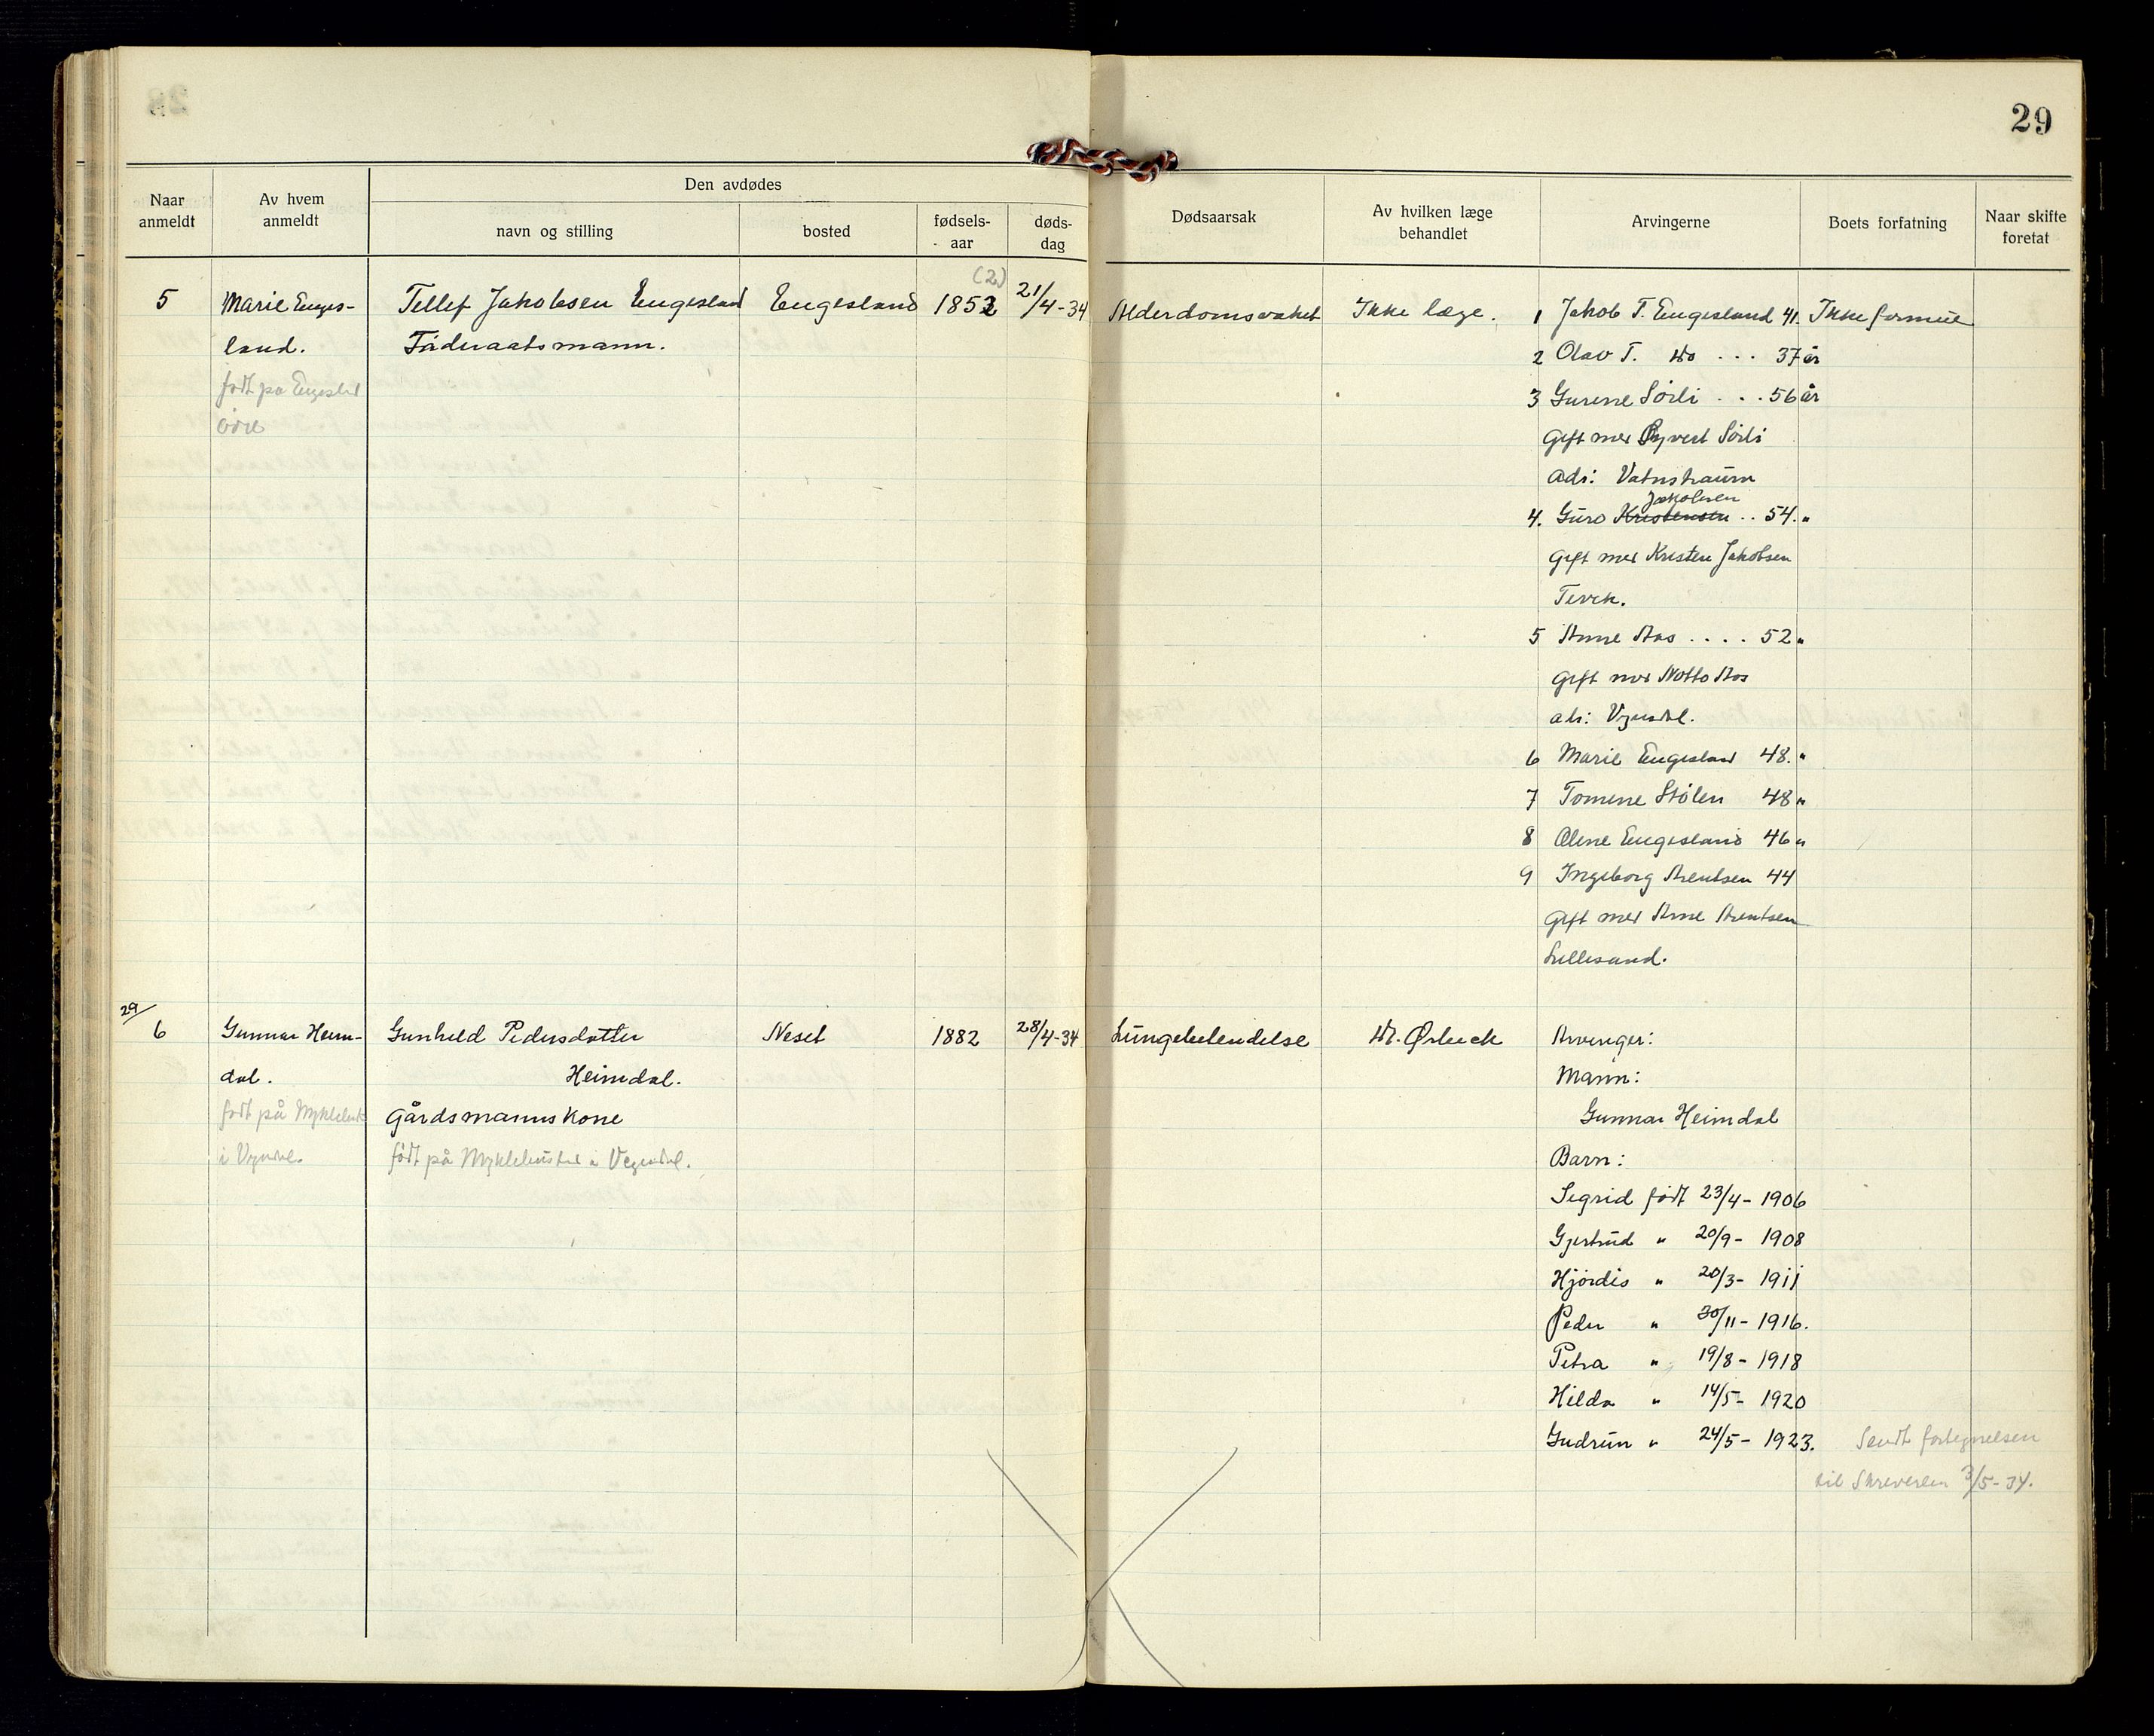 29
Naar anmeldt
Av hvem anmeldt
Den avdødes
navn og stilling
bosted
fødsels-aar
døds-dag
Dødsaarsak
Av hvilken læge behandlet
Arvingerne
Boets forfatning
Naar skifte foretat
5
Marie Enges-
land.
født på
Tellef Jakobsen Engesland
Föderaatsmann.
Engesland
(2)
1852
21/4-34
Alderdomssvakhet
Ikke læge.
Ikke formue
1 Jakob T. Engesland 41.
2 Olav T. do ... 37 år
3 Gurene Sörli ... 56 år
Gift med Syvert Sörli
Adr: Vatnstraum
Jakobsen
4. Guro Kristensen .. 54. "
Gift med Kristen Jakobsen
5 Anne Aas .... 52 "
Gift med Notto Aas
adr: Vegusdal.
6 Marie Engesland 48. "
7 Tomine Stölen 48 "
8 Olene Engesland 46 "
9 Ingeborg Arentsen 44
Gift med Arne Arentsen
Lillesand.
29/
6
Gunnar Heim-
dal.
født på Myklebust
i Vegusdal.
Gunhild Pedersdatter
Heimdal.
Gårdsmannskone
født på Myklebustad i Vegusdal.
Neset
1882
28/4-34
Lungebetendelse
Dr. Ørbeck
Arvinger:
Mann:
Gunnar Heimdal
Barn:
Sigrid født 23/4 - 1906
Gjertrud " 20/9 - 1908
Hjördis " 20/3 - 1911
Peder " 30/11 - 1916.
Petra " 19/8 - 1918
Hilda " 14/5 - 1920
Gudrun " 24/5 - 1923.
Sendt fortegnelsen
til Skriveren 3/5-34.